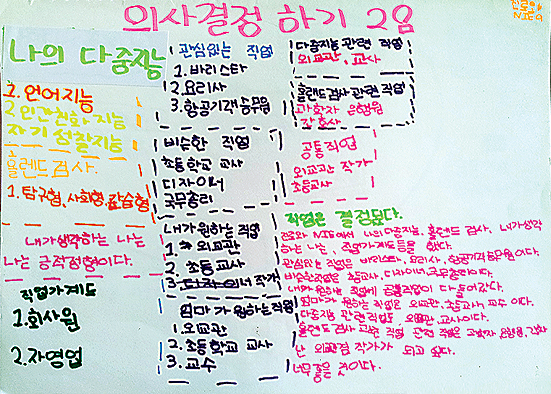 의사결정 하기 2임
진로와
NIE 9
나의 다중지능
1. 언어지능
2 인간친화 지능
자기 성찰지능
홀랜드 검사.
1. 탐구형, 사회형, 관습형
내가 생각하는 나는
나는 긍정적형이다.
직업가계도
1. 회사원
2. 자영업
관심있는 직업
1. 바리스타
2. 요리사
3. 항공기객실승무원
비슷한 직업
초등학교 교사
디자이너
국무총리
내가 원하는 직업
1. 외교관
2. 초등교사
3. 디자이너 작가
엄마가 원하는직업
1. 외교관
2. 초등학교 교사
3. 교수
다중지능 관련 직업
외교관, 교사
홀랜드검사 관련 직업
과학자 은행원
간호사
공통직업
외교관 작가
초등교사
직업은 결정됬다.
진로와 NIE에서 나의 다중지능, 홀랜드 검사, 내가생각
하는 나는, 직업가계도등을 했다.
관심있는 직업은 바리스타, 요리사, 항공기객실승무원이다.
비슷한직업은 초등교사, 디자이너, 국무총리이다.
내가 원하는 직업에 공통직업이 다 들어갔다.
엄마가 원하는 직업은 외교관, 초등교사, 교수 이다.
다중지능 관련직업도 외교관, 교사이다.
홀랜드 검사 관련 직업은 과학자, 은행원, 간호사
난 외교관 작가가 되고 싶다.
너무 좋을 것이다.